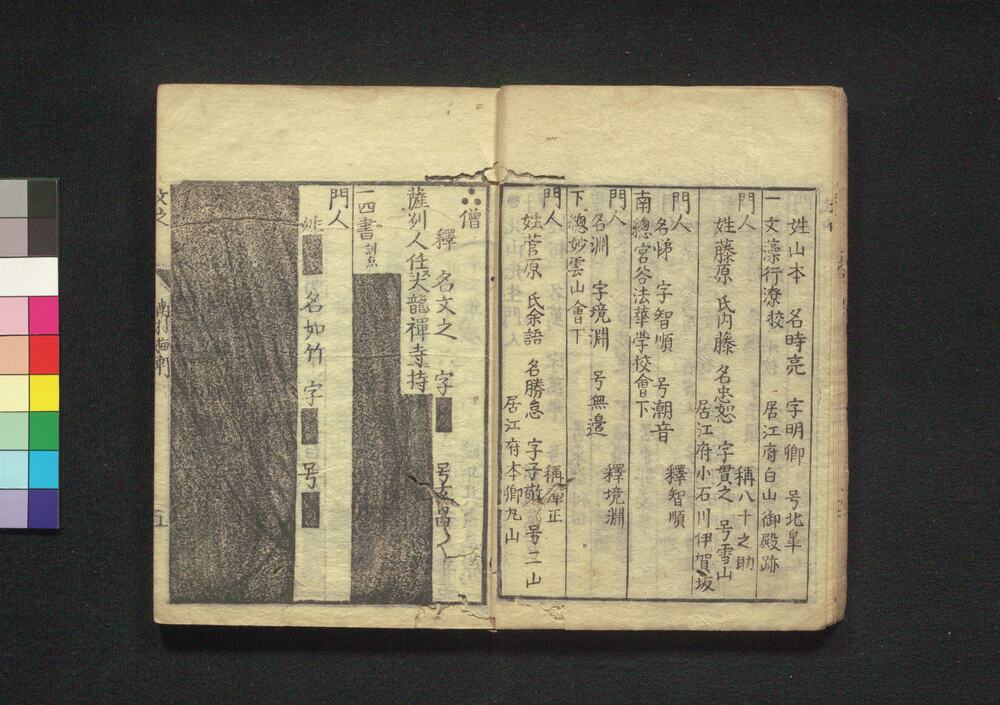 姓山本 名時亮 字明卿 号北皐
一文藻行潦校 居江府白山御殿跡
門人 稱八十之助
姓藤原 氏内藤 名忠恕 字貫之 号雪山
居江府小石川伊賀坂
門人 釋智順
名悌 字智順 号潮音
南總宮谷法華学校會下
門人 釋境淵
名淵 字境淵 号無邊
下總妙雲山會下
門人 稱 正
姓菅原 氏余語 名勝急 字子敬 号二山
居江府本郷丸山
僧
釋 名文之 字 号玄昌
薩刕人住大龍禪寺持
一四書訓点
門人
姓 名如竹 字 号
文之
南村梅軒
五